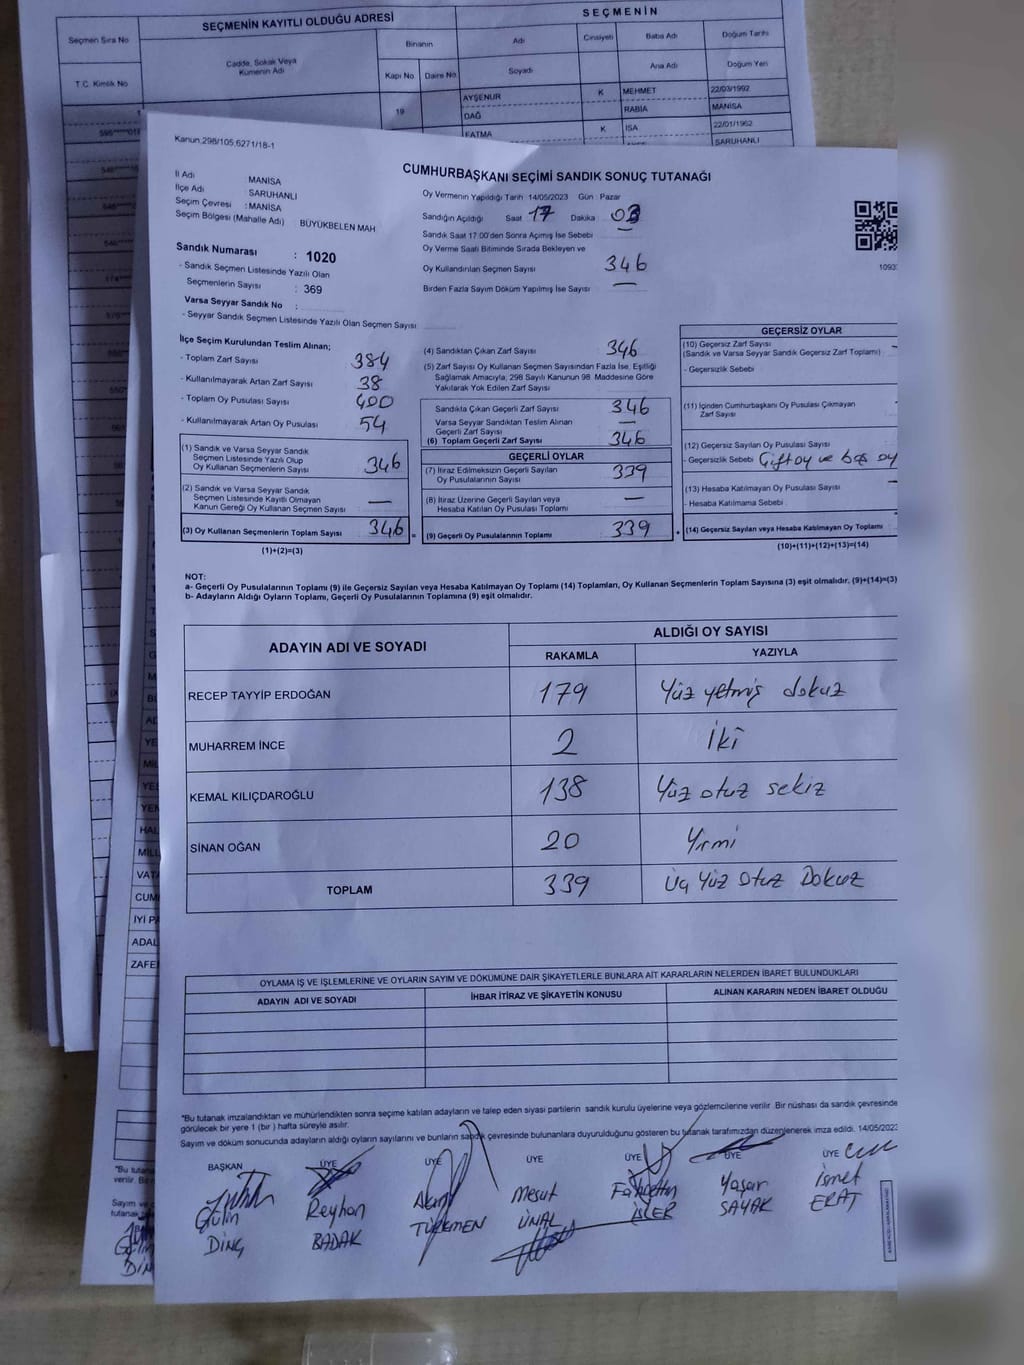 SEÇMENİN KAYITLI OLDUĞU ADRESİ
SEÇMENİN
Seçmen Sıra No
Cadde, Sokak Veya
Kümenin Adı
Binanın
Adı
Cinsiyeti
Baba Adı
Doğum Tarihi
T.C. Kimlik No
Kapı No
Daire No
Soyadı
Ana Adı
Doğum Yeri
19
AYŞENUR
K
MEHMET
22/03/1992
DAĞ
RABİA
MANİSA
FATMA
K
İSA
22/01/1962
SARUHANLI
Kanun:298/105,6271/18-1
CUMHURBAŞKANI SEÇİMİ SANDIK SONUÇ TUTANAĞI
İl Adı : MANİSA
İlçe Adı : SARUHANLI
Seçim Çevresi : MANİSA
Seçim Bölgesi (Mahalle Adı) BÜYÜKBELEN MAH
Oy Vermenin Yapıldığı Tarih 14/05/2023 Gün : Pazar
Sandığın Açıldığı Saat 17 Dakika 03
Sandık Saat 17:00'den Sonra Açımış İse Sebebi —
Oy Verme Saati Bitiminde Sırada Bekleyen ve
Oy Kullandırılan Seçmen Sayısı 346
Birden Fazla Sayım Döküm Yapılmış İse Sayısı —
Sandık Numarası : 1020
- Sandık Seçmen Listesinde Yazılı Olan
Seçmenlerin Sayısı : 369
Varsa Seyyar Sandık No :
- Seyyar Sandık Seçmen Listesinde Yazılı Olan Seçmen Sayısı
İlçe Seçim Kurulundan Teslim Alınan;
- Toplam Zarf Sayısı 384
- Kullanılmayarak Artan Zarf Sayısı 38
- Toplam Oy Pusulası Sayısı 400
- Kullanılmayarak Artan Oy Pusulası 54
(1) Sandık ve Varsa Seyyar Sandık
Seçmen Listesinde Yazılı Olup
Oy Kullanan Seçmenlerin Sayısı 346
(2) Sandık ve Varsa Seyyar Sandık
Seçmen Listesinde Kayıtlı Olmayan
Kanun Gereği Oy Kullanan Seçmen Sayısı —
(3) Oy Kullanan Seçmenlerin Toplam Sayısı 346 =
(1)+(2)=(3)
(4) Sandıktan Çıkan Zarf Sayısı 346
(5) Zarf Sayısı Oy Kullanan Seçmen Sayısından Fazla İse, Eşitliği
Sağlamak Amacıyla, 298 Sayılı Kanunun 98. Maddesine Göre
Yakılarak Yok Edilen Zarf Sayısı
Sandıkta Çıkan Geçerli Zarf Sayısı 346
Varsa Seyyar Sandıktan Teslim Alınan
Geçerli Zarf Sayısı —
(6) Toplam Geçerli Zarf Sayısı 346
GEÇERLİ OYLAR
(7) İtiraz Edilmeksizin Geçerli Sayılan
Oy Pusulalarının Sayısı 339
(8) İtiraz Üzerine Geçerli Sayılan veya
Hesaba Katılan Oy Pusulası Toplamı —
(9) Geçerli Oy Pusulalarının Toplamı 339
GEÇERSİZ OYLAR
(10) Geçersiz Zarf Sayısı
(Sandık ve Varsa Seyyar Sandık Geçersiz Zarf Toplamı)
- Geçersizlik Sebebi
(11) İçinden Cumhurbaşkanı Oy Pusulası Çıkmayan
Zarf Sayısı
(12) Geçersiz Sayılan Oy Pusulası Sayısı
- Geçersizlik Sebebi Çift oy ve boş oy
(13) Hesaba Katılmayan Oy Pusulası Sayısı
- Hesaba Katılmama Sebebi
(14) Geçersiz Sayılan veya Hesaba Katılmayan Oy Toplamı
(10)+(11)+(12)+(13)=(14)
NOT:
a- Geçerli Oy Pusulalarının Toplamı (9) ile Geçersiz Sayılan veya Hesaba Katılmayan Oy Toplamı (14) Toplamları, Oy Kullanan Seçmenlerin Toplam Sayısına (3) eşit olmalıdır. (9)+(14)=(3)
b- Adayların Aldığı Oyların Toplamı, Geçerli Oy Pusulalarının Toplamına (9) eşit olmalıdır.
ADAYIN ADI VE SOYADI
ALDIĞI OY SAYISI
RAKAMLA
YAZIYLA
RECEP TAYYİP ERDOĞAN 179 Yüz yetmiş dokuz
MUHARREM İNCE 2 İki
KEMAL KILIÇDAROĞLU 138 Yüz otuz sekiz
SİNAN OĞAN 20 Yirmi
TOPLAM 339 Üç Yüz Otuz Dokuz
OYLAMA İŞ VE İŞLEMLERİNE VE OYLARIN SAYIM VE DÖKÜMÜNE DAİR ŞİKAYETLERLE BUNLARA AİT KARARLARIN NELERDEN İBARET BULUNDUKLARI
ADAYIN ADI VE SOYADI
İHBAR İTİRAZ VE ŞİKAYETİN KONUSU
ALINAN KARARIN NEDEN İBARET OLDUĞU
*Bu tutanak imzalandıktan ve mühürlendikten sonra seçime katılan adayların ve talep eden siyasi partilerin sandık kurulu üyelerine veya gözlemcilerine verilir. Bir nüshası da sandık çevresinde
görülecek bir yere 1 (bir) hafta süreyle asılır.
Sayım ve döküm sonucunda adayların aldığı oyların sayılarını ve bunların sandık çevresinde bulunanlara duyurulduğunu gösteren bu tutanak tarafımızdan düzenlenerek imza edildi. 14/05/2023
BAŞKAN ÜYE ÜYE ÜYE ÜYE ÜYE ÜYE
Gülin Reyhan Akın Mesut Fahrettin Yaşar İsmet
DİNÇ BADAK TÜRKMEN ÜNAL İŞLER SAYAK ERAT